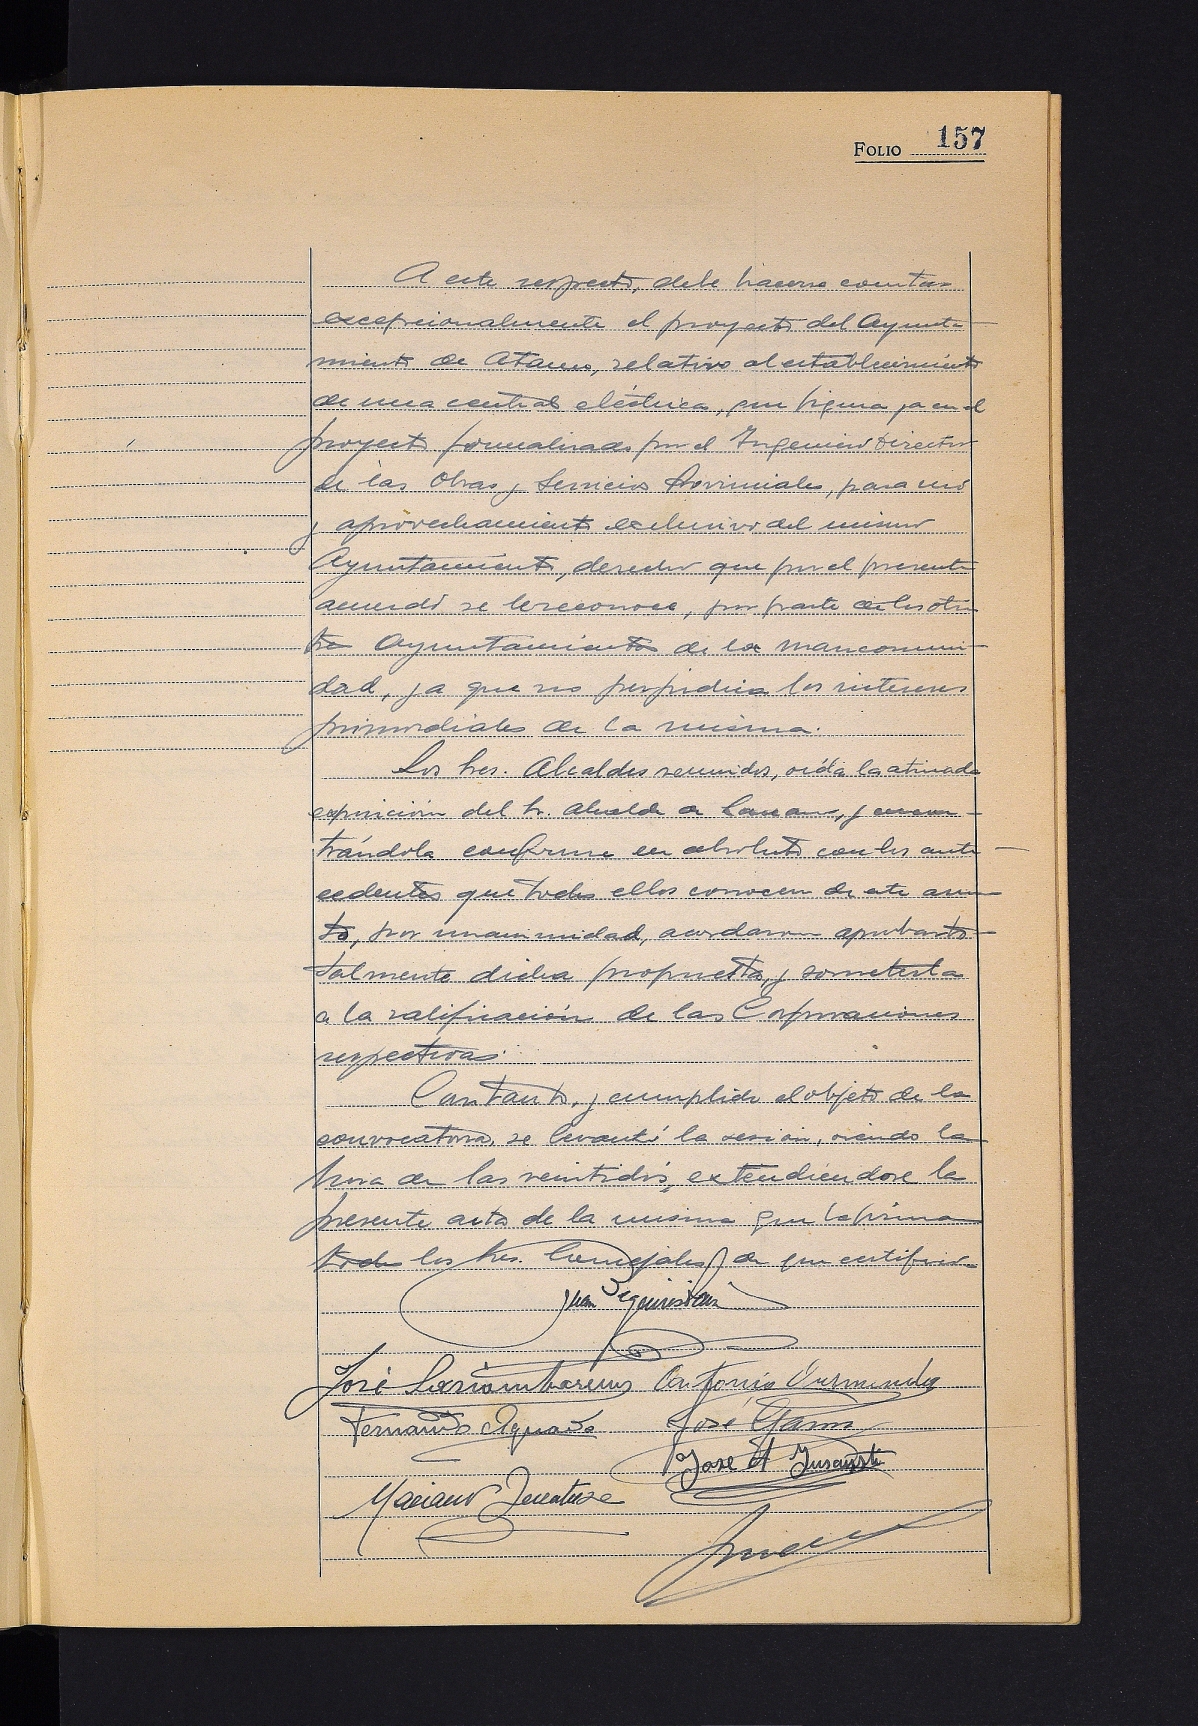 FOLIO 157
A este respecto, debe hacerse constar
excepcionalmente el proyecto del Ayunta-
miento de Ataun, relativo al establecimiento
de una central eléctrica, que figura ya en el
proyecto formalizado por el Ingeniero Director
de las Obras y Servicios Provinciales, para uso
y aprovechamiento exclusivo del mismo
Ayuntamiento, derecho que por el presente
acuerdo se le reconoce, por parte de los otros
tres Ayuntamientos de la mancomuni-
dad, ya que no perjudica los intereses
primordiales de la misma.
Los Sres. Alcaldes reunidos, oída la atinada
exposición del Sr. Alcalde de Lazcano, y encon-
trándola conforme en absoluto con los ante-
cedentes que todos ellos conocen de este asun-
to, por unanimidad, acordaron aprobar to-
talmente dicha propuesta, y someterla
a la ratificación de las Corporaciones
respectivas.
Por tanto, y cumplido el objeto de la
convocatoria, se levantó la sesión, siendo la
hora de las veintidós, extendiéndose la
presente acta de la misma que la firman
todos los Sres. Concejales, de que certifico.
Juan
José Antonio
Fernando Aguado José
José
Mariano